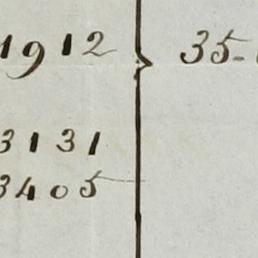 1912 } 35-
3131
3405